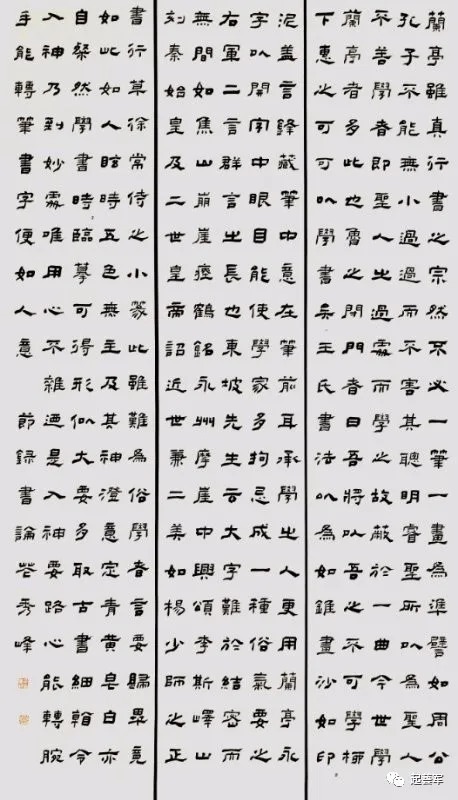 蘭亭雖真行書之宗然不必一筆一畫為準譬如周公
孔子不能無小過過而不害其聰明睿聖所以為聖人
不善學者即聖人之過處而學之故蔽於一曲今世學
蘭亭者多此也魯之閉門者曰吾將以吾之不可學柳
下惠之可可以學書矣王氏書法以為如錐畫沙如印
泥蓋言鋒藏筆中意在筆前耳承學之人更用蘭亭永
字以開字中眼目能使學家多拘忌成一種俗氣要之
右軍二言群言之長也東坡先生云大字難於結密而
無間如焦山崩崖瘞鶴銘永州摩崖中興頌李斯嶧山
刻秦始皇及二世皇帝詔近世兼二美如楊少師之正
書行草徐常侍之小篆此雖難為俗學者言要歸畢竟
如此如人眩時五色無主及其神澄意定青黃皂白亦
自粲然學書時臨摹可得形似大要多取古書細看令
入神乃到妙處唯用心不雜迺是入神要路心能轉腕
手能轉筆書字便如人意 節錄書論 秀峰
起藝军